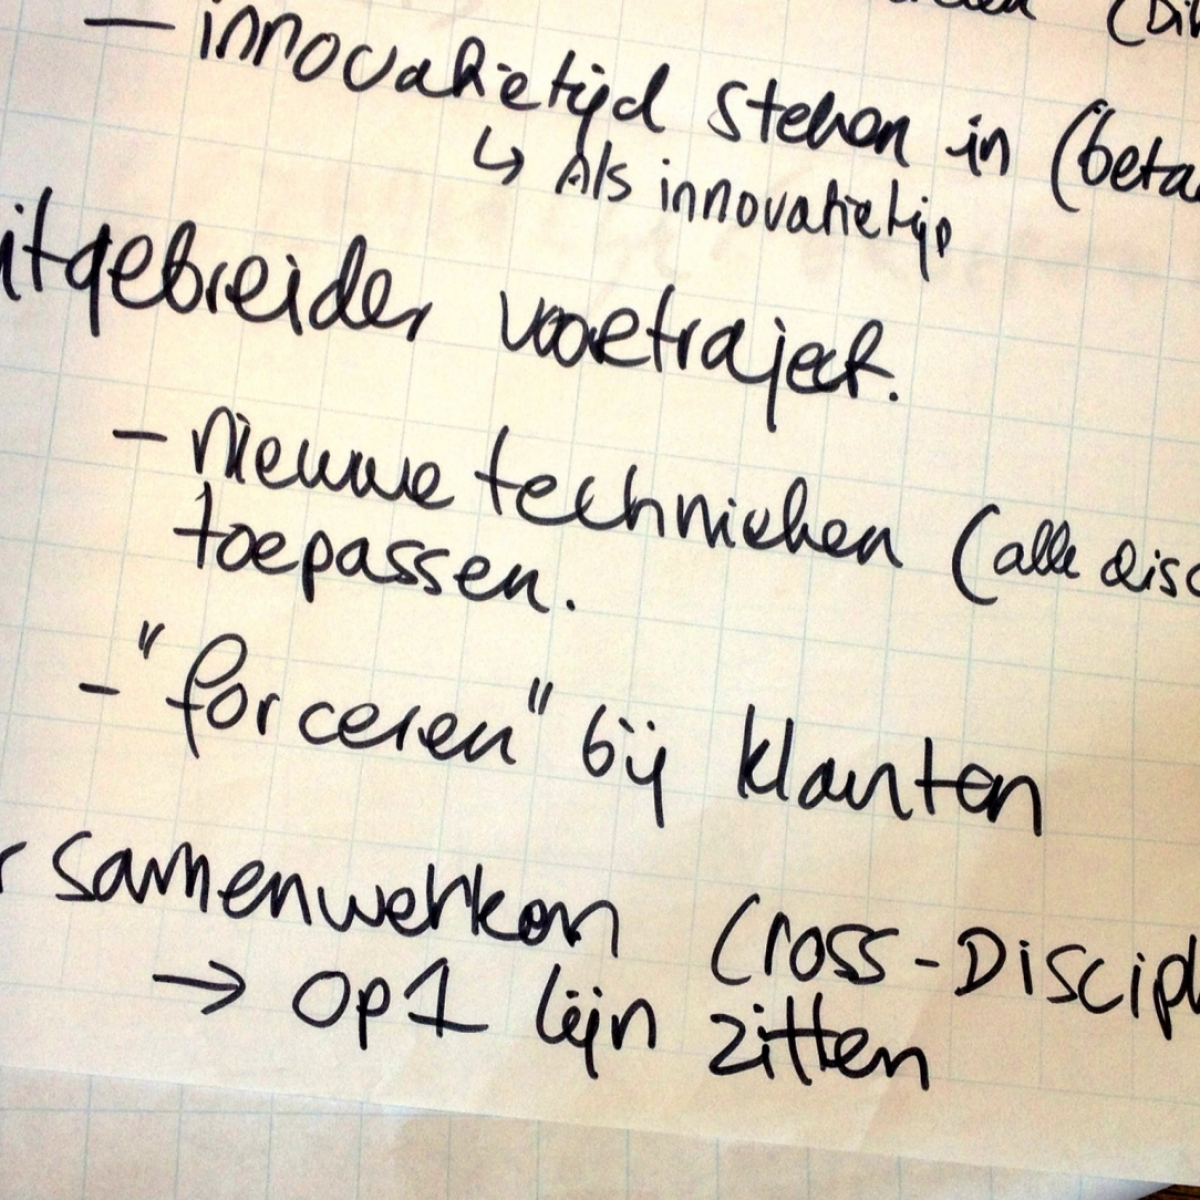 (Di
- innovatietijd steken in (beta
↳ Als innovatietijd
itgebreider voortraject.
- nieuwe technieken (alle disc
toepassen.
- "forceren" bij klanten
r samenwerken Cross-Discipl
→ op 1 lijn zitten